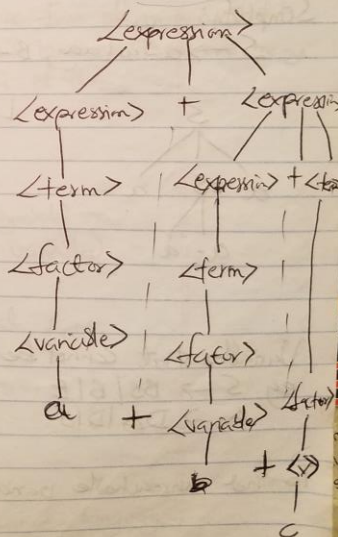 <expression>
<expression> + <expression
<term> <expessin> + <te
<factor> <term>
<variable> <fator>
a + <variable> <fator>
b + <v>
c